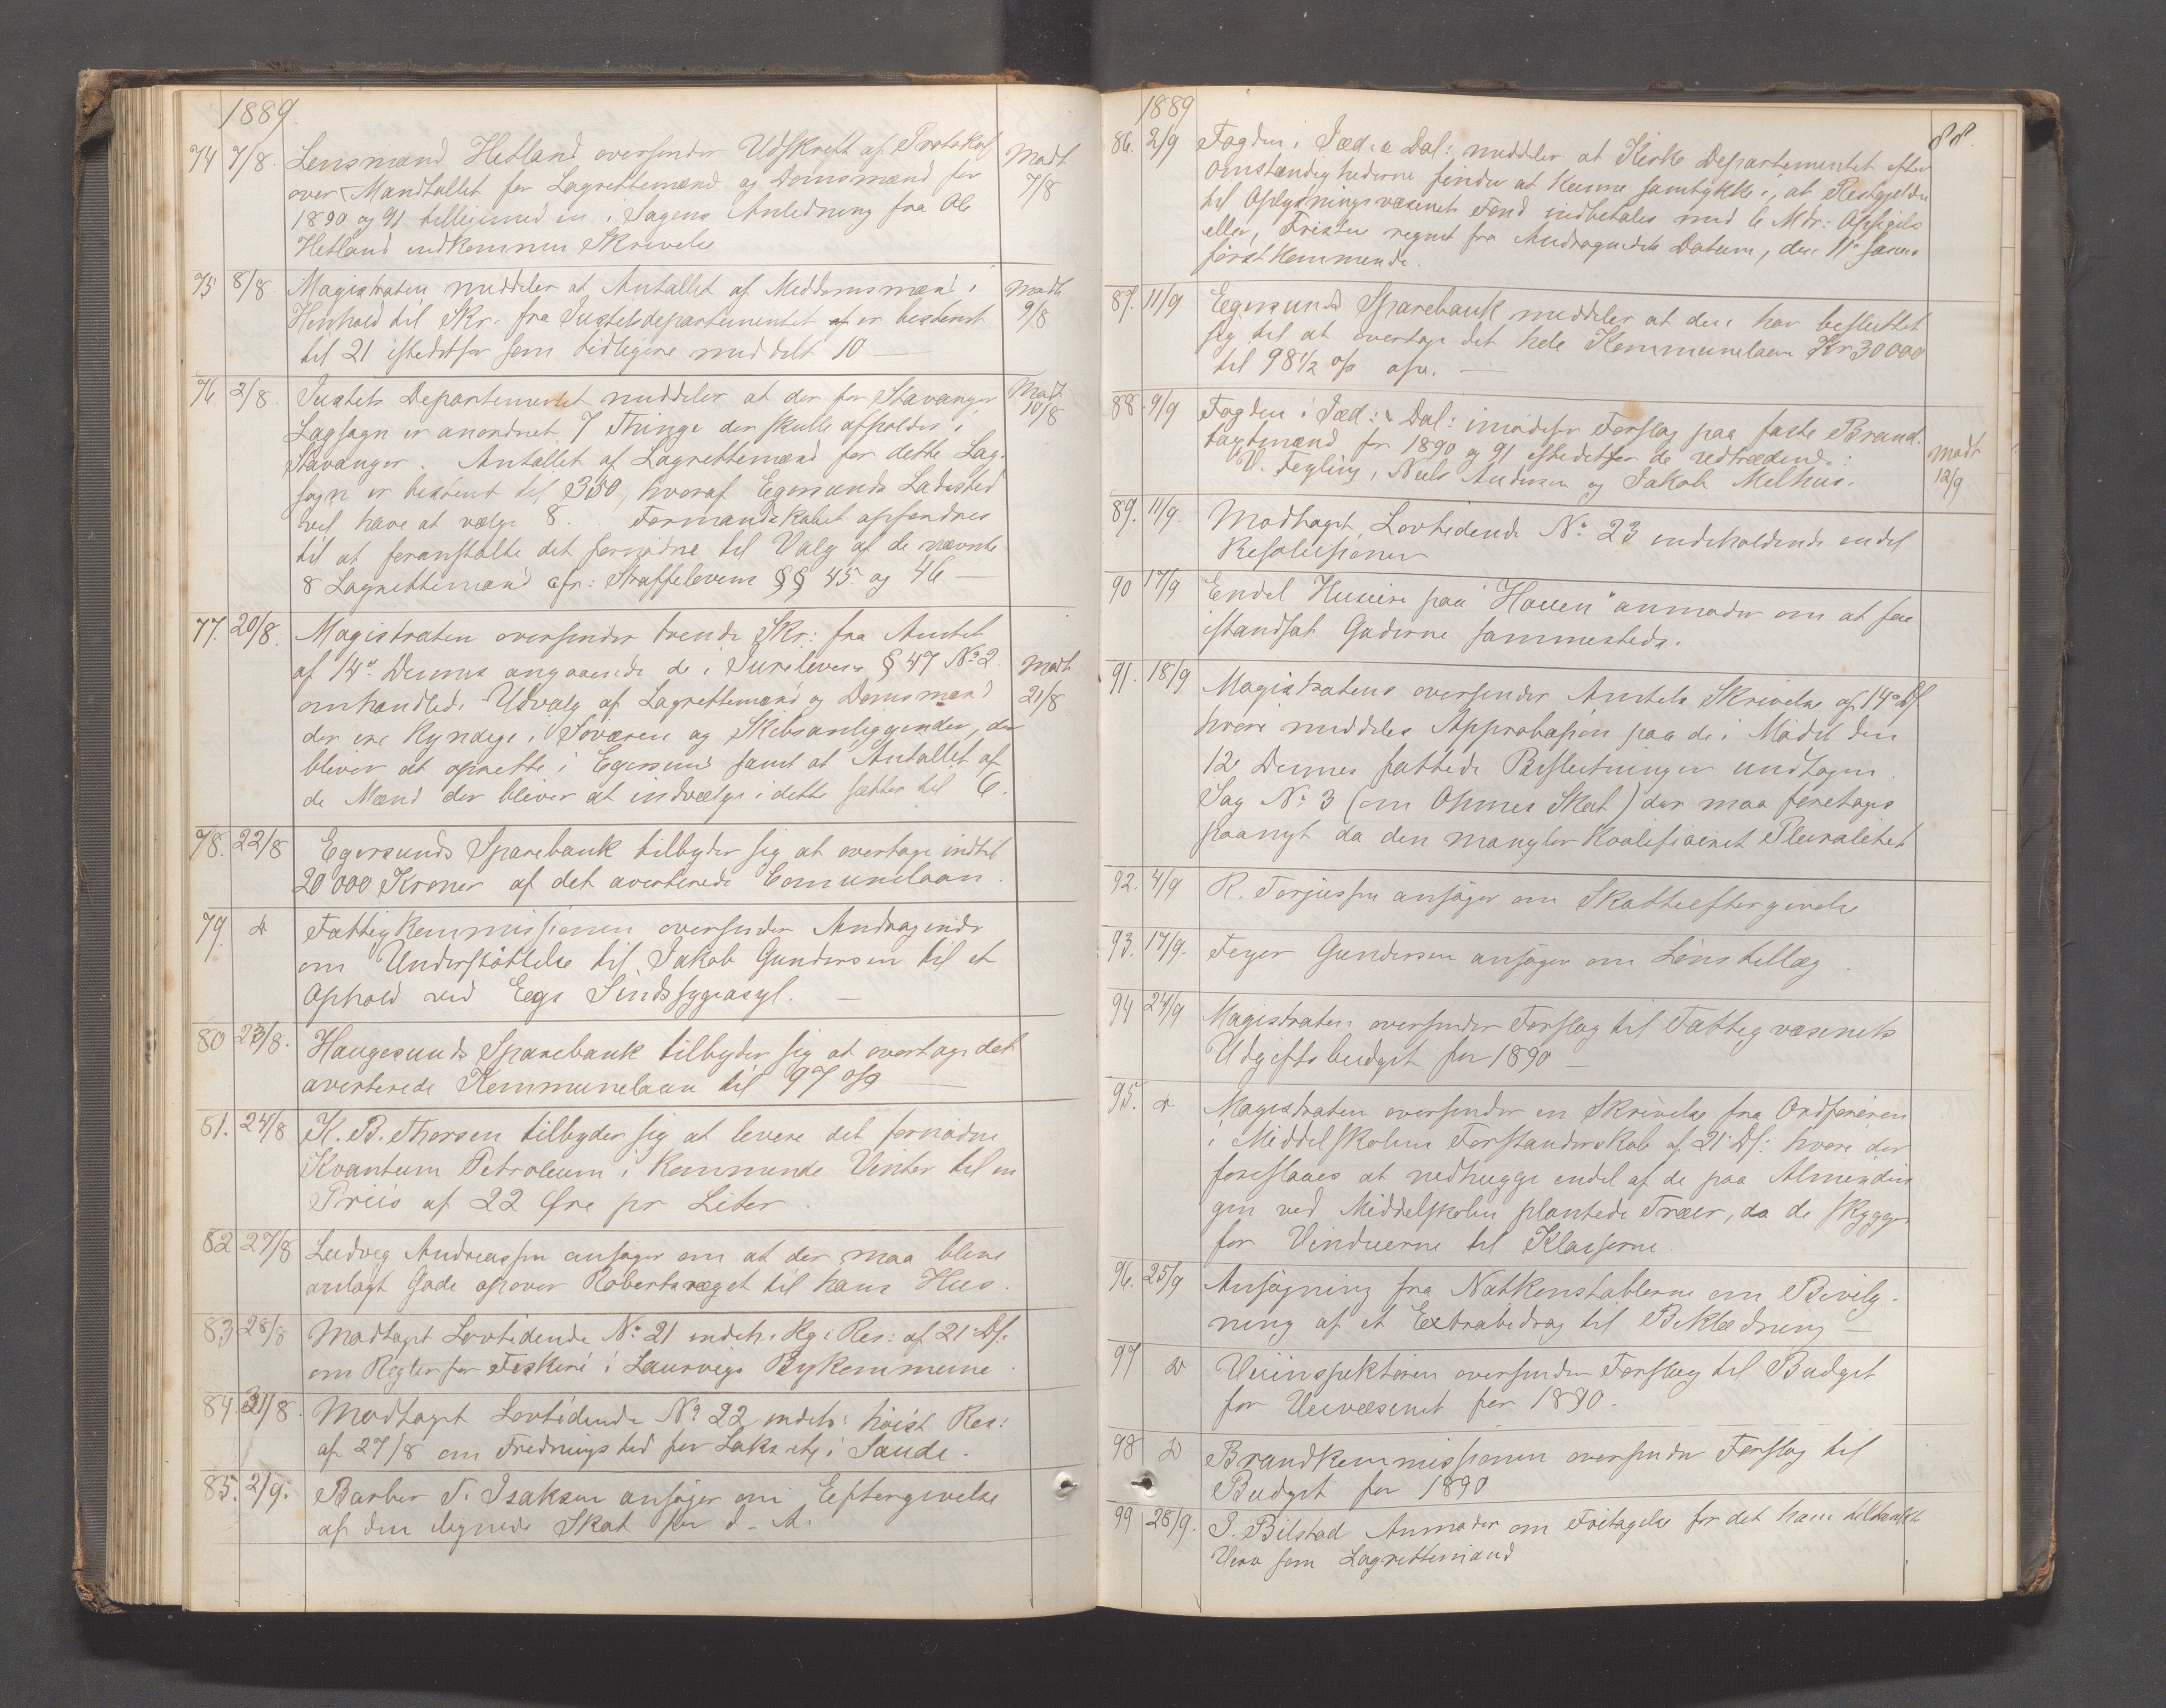 1889.
74 7/8. Lensmand Hetland oversender Udskrift af Protokol Modt
over Mandtallet for Lagrettemænd og Domsmænd for 7/8
1890 og 91 tilligemed en i Sagens Anledning fra Ole
Hetland indkommen Skrivelse
75 8/8 Magistraten meddeler at Antallet af Meddomsmænd i Modt
Henhold til Skr. fra Justitsdepartementet er bestemt 9/8
til 21 istedetfor som tidligere meddelt 10 —
76 2/8. Justits Departementet meddeler at der for Stavanger Modt
Lagsogn er anordnet 7 Thinge der skulle afholdes i 10/8
Stavanger. Antallet af Lagrettemænd for dette Lag-
sogn er bestemt til 350, hvoraf Egersunds Ladested
vil have at vælge 8. Formandskabet opfordres
til at foranstalte det fornødne til Valg af de nævnte
8 Lagrettemænd cfr: Straffeloven §§ 45 og 46 —
77. 20/8. Magistraten oversender tvende Skr: fra Amtet
af 14de Dennes angaaende de i Juryloven § 47 No 2 Modt
omhandlede Udvalg af Lagrettemænd og Domsmænd 21/8
der ere kyndige i Søvæsen og Skibsanliggender, der
bliver at oprette i Egersund samt at Antallet af
de Mænd der bliver at indvælge i dette sættes til 6.
78. 22/8 Egersunds Sparebank tilbyder sig at overtage indtil
20 000 Kroner af det averterede Comunelaan.
79. d Fattigkommissionen oversender Andragende
om Understøttelse til Jakob Gundersen til et
Ophold ved Eegs Sindssygeasyl. —
80 23/8. Haugesunds Sparebank tilbyder sig at overtage det
averterede Kommunelaan til 97 o/o —
81. 24/8 K. B. Thorsen tilbyder sig at levere det fornødne
Kvantum Petroleum i kommende Vinter til en
Priis af 22 Øre pr Liter.
82 27/8 Ludvig Andreassen ansøger om at der maa blive
anlagt Gade opover Robertsvæget til hans Hus.
83 28/8 Modtaget Lovtidende No 21 indeh. Kg: Res: af 21 Ds.
om Regler for Fiskeri i Laurvigs Bykommune.
84. 31/8. Modtaget Lovtidende No 22 indeh: høist Res:
af 27/8 om Fredningstid for Laks etc i Saude.
85. 2/9. Barber T. Isaksen ansøger om Eftergivelse
af den lignede Skat for d. A.
1889 88.
86. 2/9 Fogden i Jæd: & Dal: meddeler at Kirke Departementet efter
Omstændighederne finder at kunne samtykke i, at Restgjælden
til Oplysningsvæsenets Fond indbetales med 6 Mdr: Opsigels
eller, Fristen regnet fra Andragendets Datum, den 11te Januar
førstkommende.
87. 11/9 Egersunds Sparebank meddeler at den har besluttet
sig til at overtage det hele Kommunelaan Kr 30000
til 98 1/2 o/o
88. 9/9 Fogden i Jæd: & Dal: imødeser Forslag paa faste Brand-
taxtmænd for 1890 og 91 istedetfor de udtrædende: Modt
V. Feyling, Niels Andersen og Jakob Melhus. 12/9
89. 11/9. Modtaget Lovtidende No 23 indeholdende endel
Resolusioner
90 17/9 Endel Husiere paa "Hauen" anmoder om at faa
istandsat Gaderne sammesteds.
91. 18/9 Magistraten oversender Amtets Skrivelse af 14de Ds
hvori meddeles Approbasion paa de i Mødet den
12te Dennes fattede Beslutninger undtagen
Sag No 3 (om Skat) der maa foretages
paanyt da den mangler Kvalificeret Pluralitet
92. 4/9 R. Torjussen ansøger om Skatteeftergivelse
93. 17/9. Feyer Gundersen ansøger om Lønstillæg.
94 24/9 Magistraten oversender Forslag til Fattigvæsenets
Udgiftsbudget for 1890 —
95. d Magistraten oversender en Skrivelse fra Ordføreren
i Middelskolens Forstanderskab af 21 Ds: hvori der
foreslaaes at nedhugge endel af de paa Almendin
gen ved Middelskolen plantede Træer, da de skygge
for Vinduerne til Klasserne.
96. 25/9 Ansøgning fra Natkonstablerne om Bevilg-
ning af et Extrabidrag til Beklædning —
97 d Veiinspektøren oversender Forslag til Budget
for Veivæsenet for 1890.
98 d Brandkommissionen oversender Forslag til
Budget for 1890
99 28/9. J. Bilstad Anmoder om Fritagelse for det ham tiltænkte
Verv som Lagrettemand